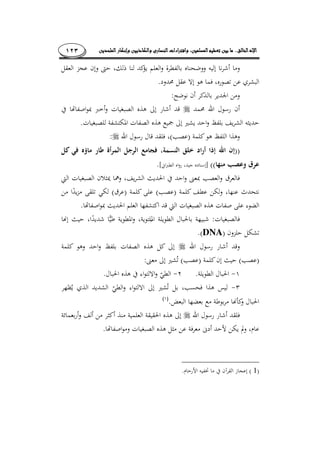 الإله الخالق.. ما بين تعظيم المسلمين، وافتراءات النصارى واللادينيين وإنكار الملحدين
١٢٣
وما أشرنا إليه ووضحناه بالفطرة والعلم يؤكد لنا ذلك، حتى وإن عجز العقل
البشري عن تصوره، فما هو إلا خلق محدود.
ومن الجدير بالذكر أن نوضح:
أن رسول الله محمد ﷺ قد أشار إلى هذه الصبغيات وأخبر بمواصفاتها في
حديثه الشريف بلفظ واحد يشير إلى جميع هذه الصفات المكتشفة للصبغيات.
وهذا اللفظ هو كلمة (عصب)، فلقد قال رسول الله ﷺ:
((إن الله إذا أراد خلق النسمة، فجامع الرجل المرأة طار ماؤه في كل
عرق وعصب منها)) [إسناده جيد، رواه الطبراني].
فالعرق والعصب بمعنى واحد في الحديث الشريف، وهما يمثلان الصبغيات التي
نتحدث عنها، ولكن عطف كلمة (عصب) على كلمة (عرق) لكي تلقى مزيدًا من
الضوء على صفات هذه الصبغيات التي قد اكتشفها العلم الحديث بمواصفاتها.
فالصبغيات: شبيهة بالحبال الطويلة الملتوية، والمطوية طيًّا شديدًا، حيث إنها
تشكل حلزون (DNA).
وقد أشار رسول الله ﷺ إلى كل هذه الصفات بلفظ واحد وهو كلمة
(عصب) حيث إن كلمة (عصب) تُشير إلى معنى:
١- الحبال الطويلة. ٢- الطيّ والالتواء في هذه الحبال.
٣- ليس هذا فحسب، بل تُشير إلى الالتواء والطيّ الشديد الذي يُظهر
الحبال وكأنها مربوطة مع بعضها البعض.(١)
فلقد أشار رسول الله ﷺ إلى هذه الحقيقة العلمية منذ أكثر من ألف وأربعمائة
عام، ولم يكن لأحد أدنى معرفة عن مثل هذه الصبغيات ومواصفاتها.
(١) إعجاز القرآن في ما تخفيه الأرحام.